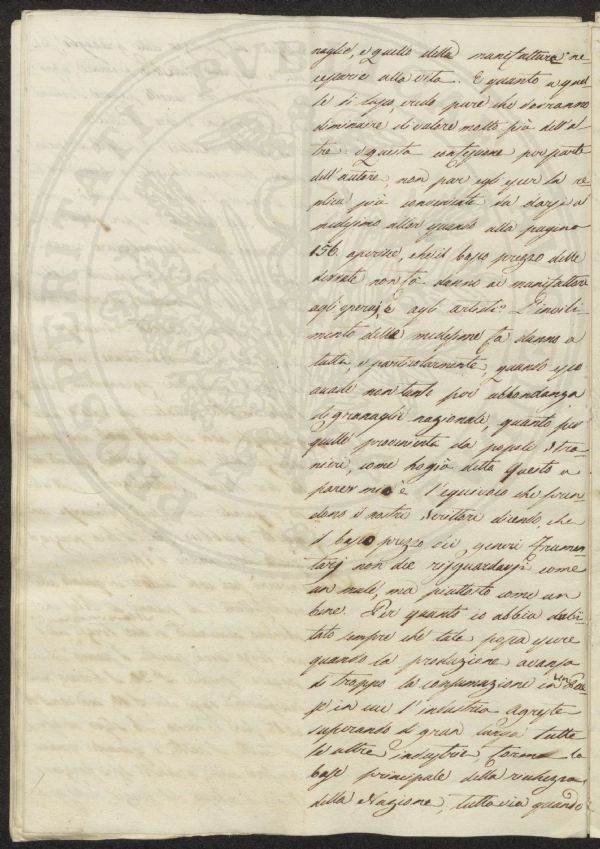 naglie, e quello della manifatture ne
cessarie alla vita. E quanto a quel
le di lusso credo pure che dovranno
diminuire di valore molto più dell'al
tre. e questa confessione per parte
dell'autore, non par egli esser la re
plica più conveniente da darsi al
medesimo allor quando alla pagina
156. asserisce, che il basso prezzo delle
derrate non fà danno ai manifattori
agli operaj, e agli artisti. L'invili-
mento delle medesime fà danno a
tutti, e particolarmente, quando esso
accade non tanto per abbondanza
di granaglie nazionale, quanto per
quelle proveniente da popoli stra
nieri, come hogià detto. Questo a
parer mio è l'equivoco che pren
dono i nostri scrittori dicendo, che
il basso prezzo dei generi Frumen
tarj non dee risguardarsi come
un male, ma piuttosto come un
bene. Per quanto io abbia dubi
tato sempre che tale possa essere
quando la produzione avanza
di troppo la consumazione in un Pae
se in cui l'industria agreste
superando di gran lunga tutte
le altre industrie, forma la
base principale della richezza
della Nazione, tuttavia quando
PROSPERITATI PVBLICAE